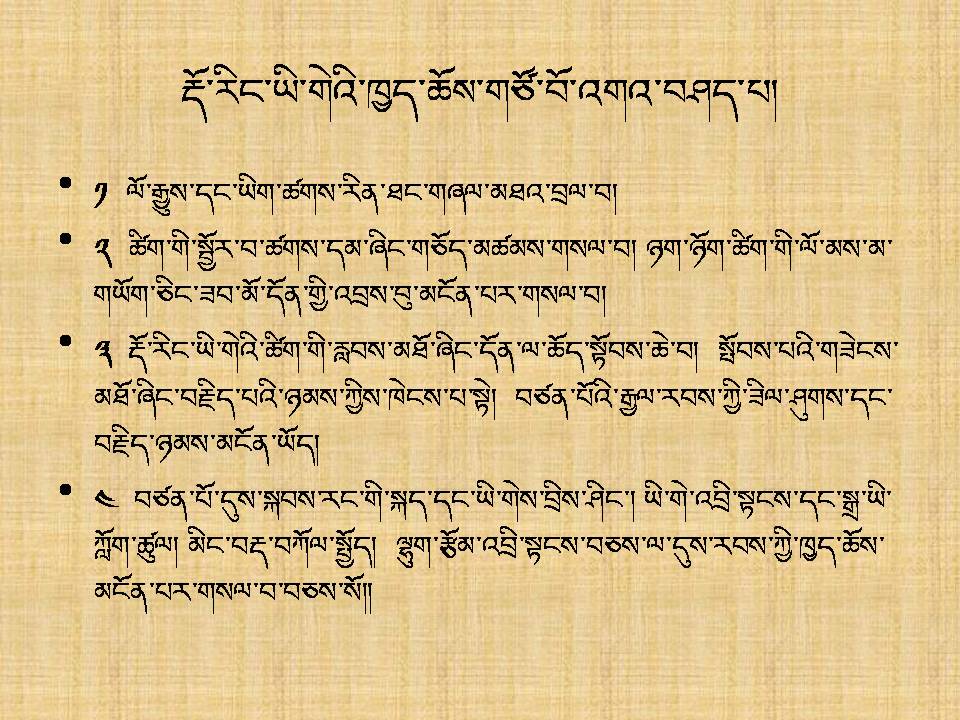 རྡོ་རིང་ཡི་གེའི་ཁྱད་ཆོས་གཙོ་བོ་འགའ་བཤད་པ།
• ༡ ལོ་རྒྱུས་དང་ཡིག་ཚགས་རིན་ཐང་གཞལ་མཐའ་བྲལ་བ།
• ༢ ཚིག་གི་སྦྱོར་བ་ཚགས་དམ་ཞིང་གཅོད་མཚམས་གསལ་བ། ཉག་ཉོག་ཚིག་གི་ལོ་མས་མ་
གཡོག་ཅིང་ཟབ་མོ་དོན་གྱི་འབྲས་བུ་མངོན་པར་གསལ་བ།
• ༣ རྡོ་རིང་ཡི་གེའི་ཚིག་གི་རླབས་མཐོ་ཞིང་དོན་ལ་ཆོད་སྟོབས་ཆེ་བ། སྤོབས་པའི་གཟེངས་
མཐོ་ཞིང་བརྗིད་པའི་ཉམས་ཀྱིས་ཁེངས་པ་སྟེ། བཙན་པོའི་རྒྱལ་རབས་ཀྱི་ཟིལ་ཤུགས་དང་
བརྗིད་ཉམས་མངོན་ཡོད།
• ༤ བཙན་པོ་དུས་སྐབས་རང་གི་སྐད་དང་ཡི་གེས་བྲིས་ཤིང་། ཡི་གེ་འབྲི་སྟངས་དང་སྒྲ་ཡི་
ཀློག་ཚུལ། མིང་བརྡ་བཀོལ་སྤྱོད། ལྷུག་རྩོམ་འབྲི་སྟངས་བཅས་ལ་དུས་རབས་ཀྱི་ཁྱད་ཆོས་
མངོན་པར་གསལ་བ་བཅས་སོ།།